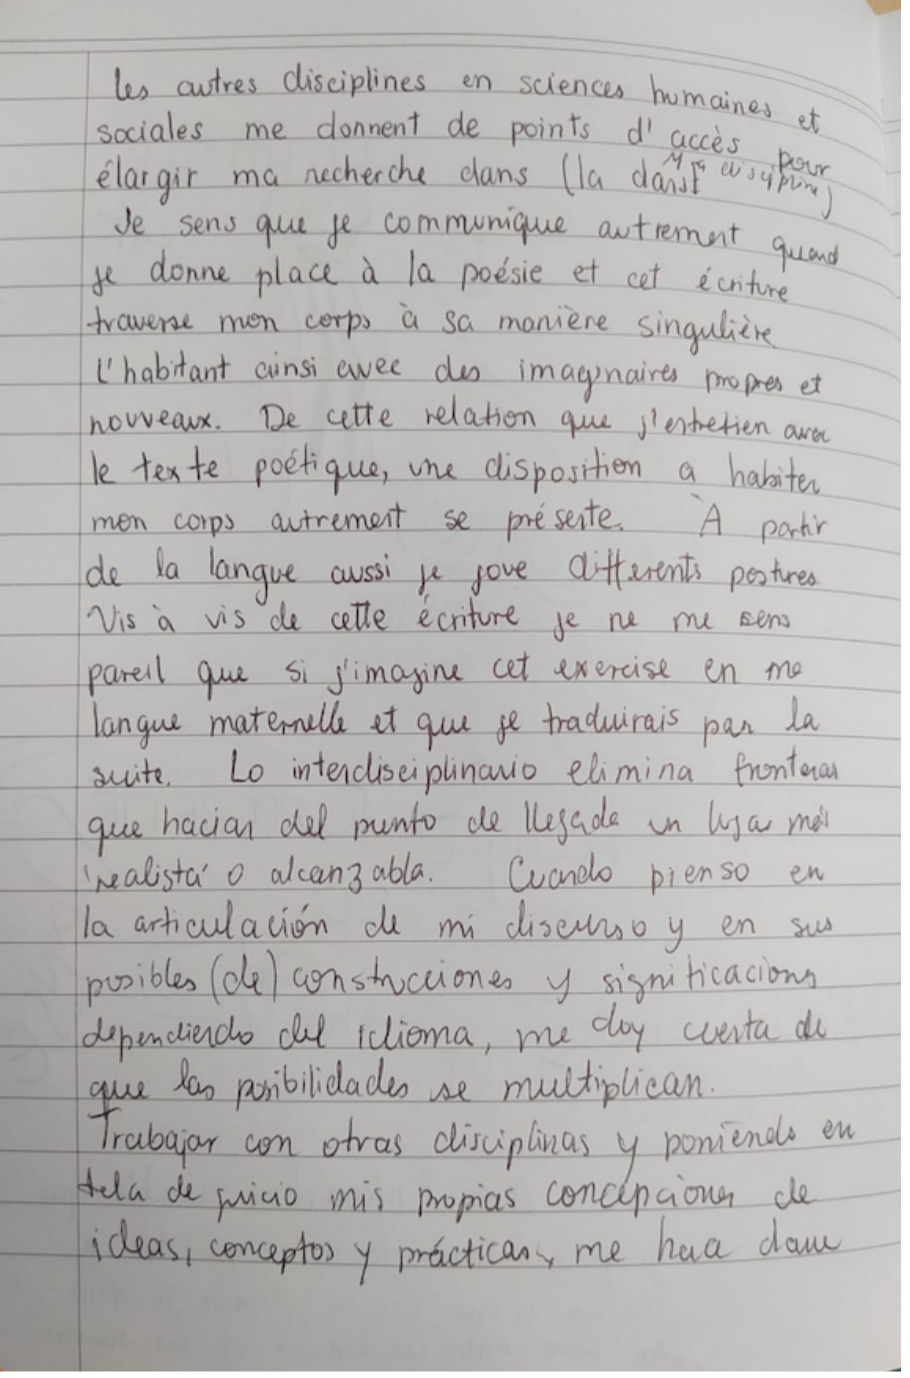 les autres disciplines en sciences humaines et
sociales me donnent de points d'accès pour
élargir ma recherche dans (la danse discipline)
Je sens que je communique autrement quand
je donne place à la poésie et cet écriture
traverse mon corps à sa manière singulière
l'habitant ainsi avec des imaginaires propres et
nouveaux. De cette relation que j'entretien avec
le texte poétique, une disposition a habiter
mon corps autrement se présente. À partir
de la langue aussi je joue differents postures
Vis à vis de cette écriture je ne me sens
pareil que si j'imagine cet exercise en ma
langue maternelle et que je traduirais par la
suite. Lo interdisciplinario elimina fronteras
que hacian del punto de llegada un lugar más
'realista' o alcanzabla. Cuando pienso en
la articulación de mi discurso y en sus
posibles (de) construcciones y significacions
dependiendo del idioma, me doy cuenta de
que las posibilidades se multiplican.
Trabajar con otras disciplinas y poniendo en
tela de juicio mis propias concepciones de
ideas, conceptos y prácticas, me